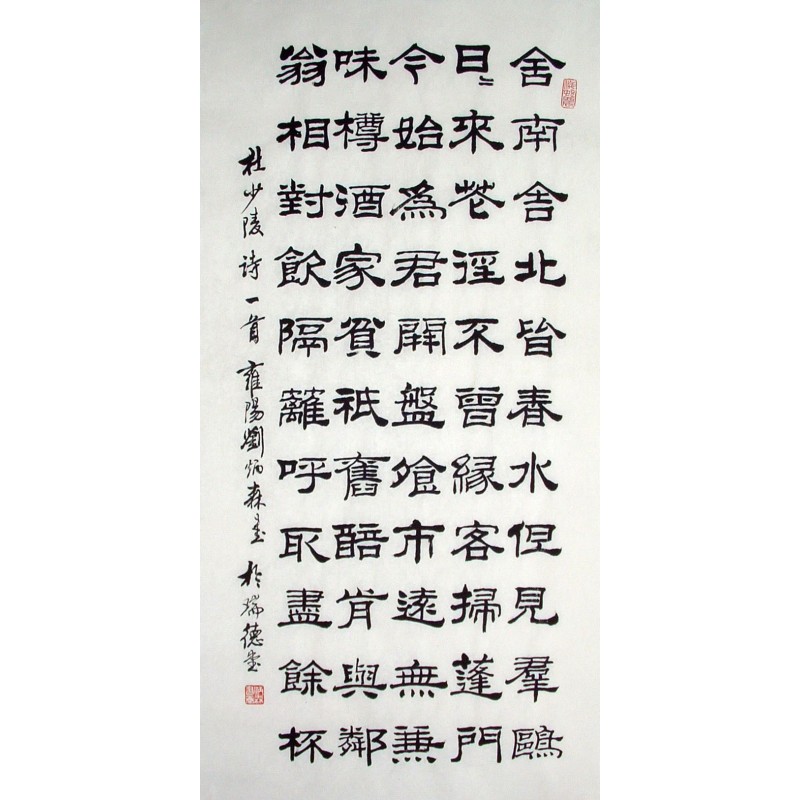 舍南舍北皆春水但見羣鷗
日〻來花徑不曾緣客掃蓬門
今始為君開盤飧市遠無兼
味樽酒家貧祇舊醅肯與鄰
翁相對飲隔籬呼取盡餘杯
杜少陵詩一首 雍陽劉炳森書於瑞德堂